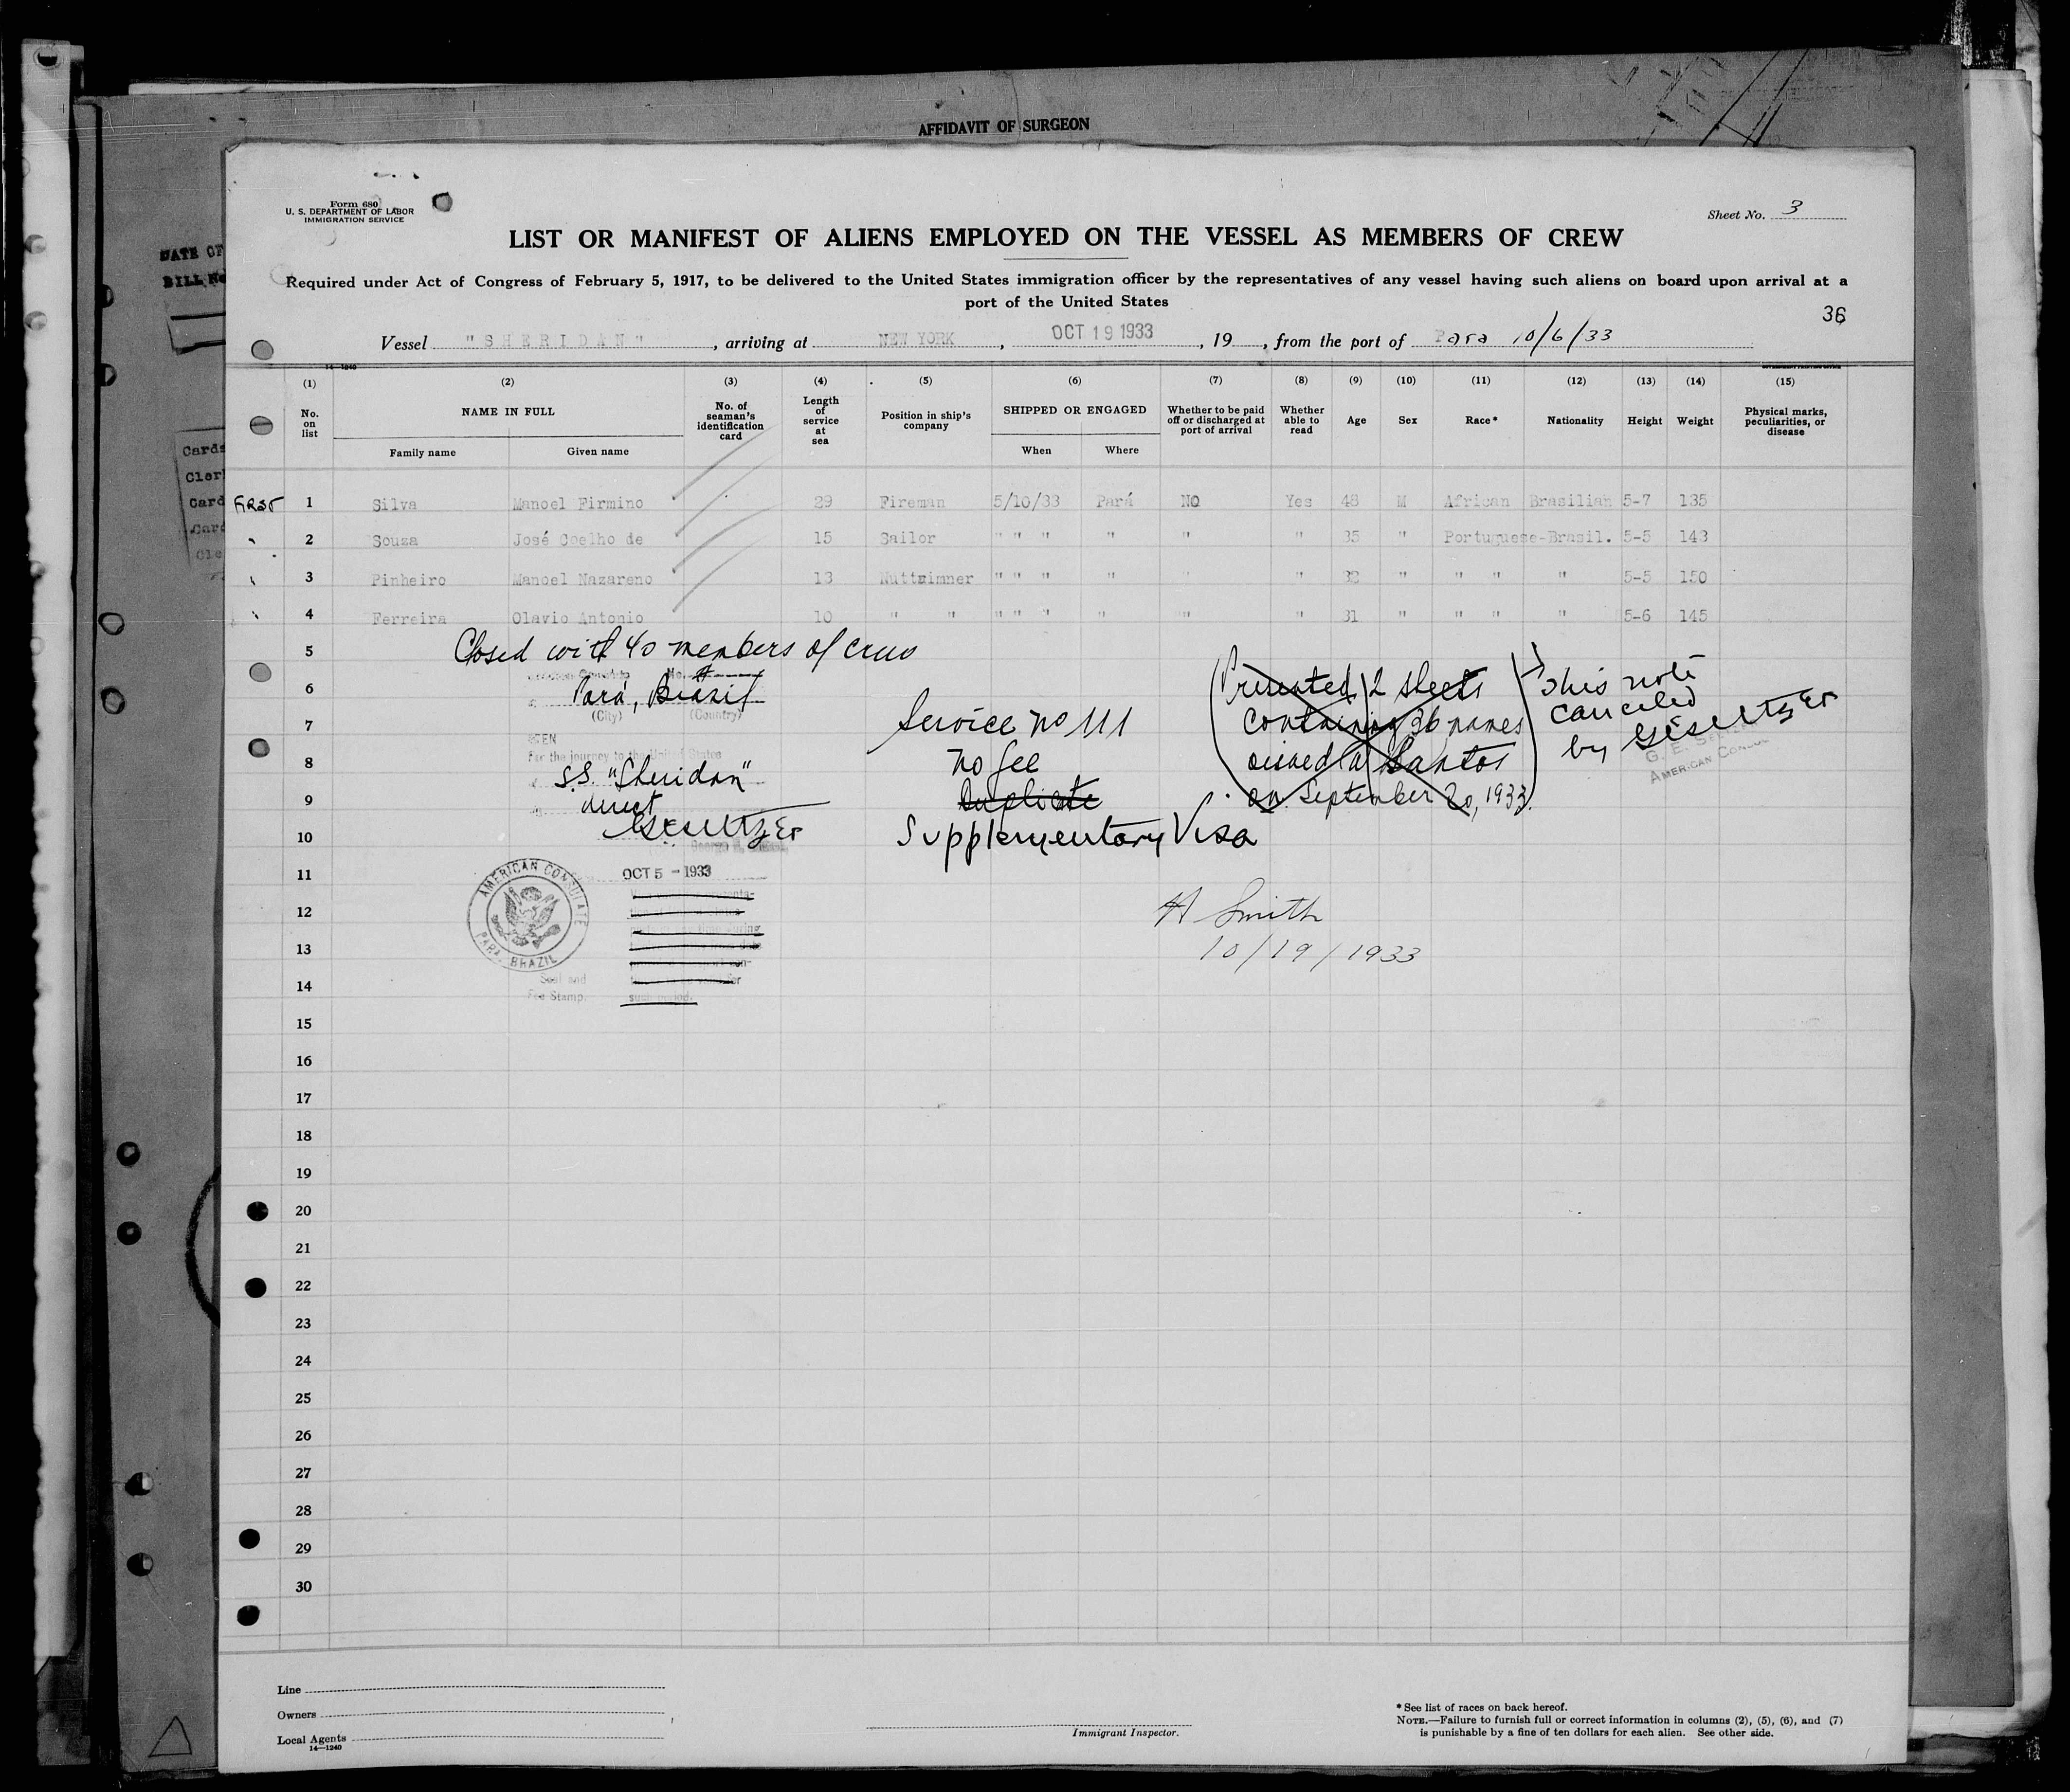 AFFIDAVIT OF SURGEON
Form 680
U. S. DEPARTMENT OF LABOR
IMMIGRATION SERVICE
Sheet No. 3
LIST OR MANIFEST OF ALIENS EMPLOYED ON THE VESSEL AS MEMBERS OF CREW
Required under Act of Congress of February 5, 1917, to be delivered to the United States immigration officer by the representatives of any vessel having such aliens on board upon arrival at a
port of the United States
36
Vessel "SHERIDAN", arriving at NEW YORK, OCT 19 1933, 19, from the port of Para 10/6/33
14—1240
(1) (2) (3) (4) (5) (6) (7) (8) (9) (10) (11) (12) (13) (14) (15)
No. on list NAME IN FULL No. of seaman's identification card Length of service at sea Position in ship's company SHIPPED OR ENGAGED Whether to be paid off or discharged at port of arrival Whether able to read Age Sex Race* Nationality Height Weight Physical marks, peculiarities, or disease
Family name Given name When Where
FIRST 1 Silva Manoel Firmino 29 Fireman 5/10/33 Pará NO Yes 48 M African Brasilian 5-7 135
" 2 Souza José Coelho de 15 Sailor " " " " " " 35 " Portuguese-Brasil. 5-5 143
" 3 Pinheiro Manoel Nazareno 13 Nuttrimner " " " " " " 32 " " " " 5-5 150
" 4 Ferreira Olavio Antonio 10 " " " " " " " " 31 " " " " 5-6 145
5 Closed with 40 members of crew
6 Pará, Brazil
(City) (Country)
7 Service no 111
Presented 2 sheets
containing 36 names
visaed at Santos
on September 20, 1933.
This note
canceled
by GESeltzer
AMERICAN CONSUL
SEEN
For the journey to the United States
8 S.S. "Sheridan"
no fee
9 direct
Duplicate
10 GESeltzer
Supplementary Visa
11 OCT 5 - 1933
AMERICAN CONSULATE
PARA, BRAZIL
12 H Smith
13 10/19/1933
Seal and
Fee Stamp.
14
15
16
17
18
19
20
21
22
23
24
25
26
27
28
29
30
Line
Owners
Local Agents
14—1240
Immigrant Inspector.
* See list of races on back hereof.
NOTE.—Failure to furnish full or correct information in columns (2), (5), (6), and (7)
is punishable by a fine of ten dollars for each alien. See other side.